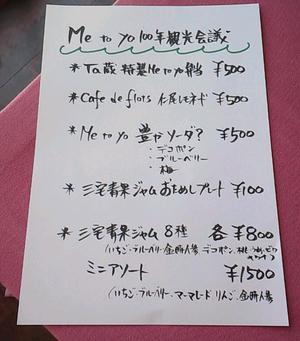 Me to yo 100年観光会議
* Ta蔵 特製Me to yo弁当 ¥500
* Cafe de flots 仁尾レモネード ¥500
* Me to yo 豊かソーダ? ¥500
・デコポン
・ブルーベリー
・梅
* 三宅青果ジャムおためしプレート ¥100
* 三宅青果ジャム 8種 各 ¥800
(いちご・ブルーベリー・金時人参 デコポン、桃、うめ、ビワ
ミニアソート ¥1500
(いちご・ブルーベリー・マーマレード りんご、金時人参